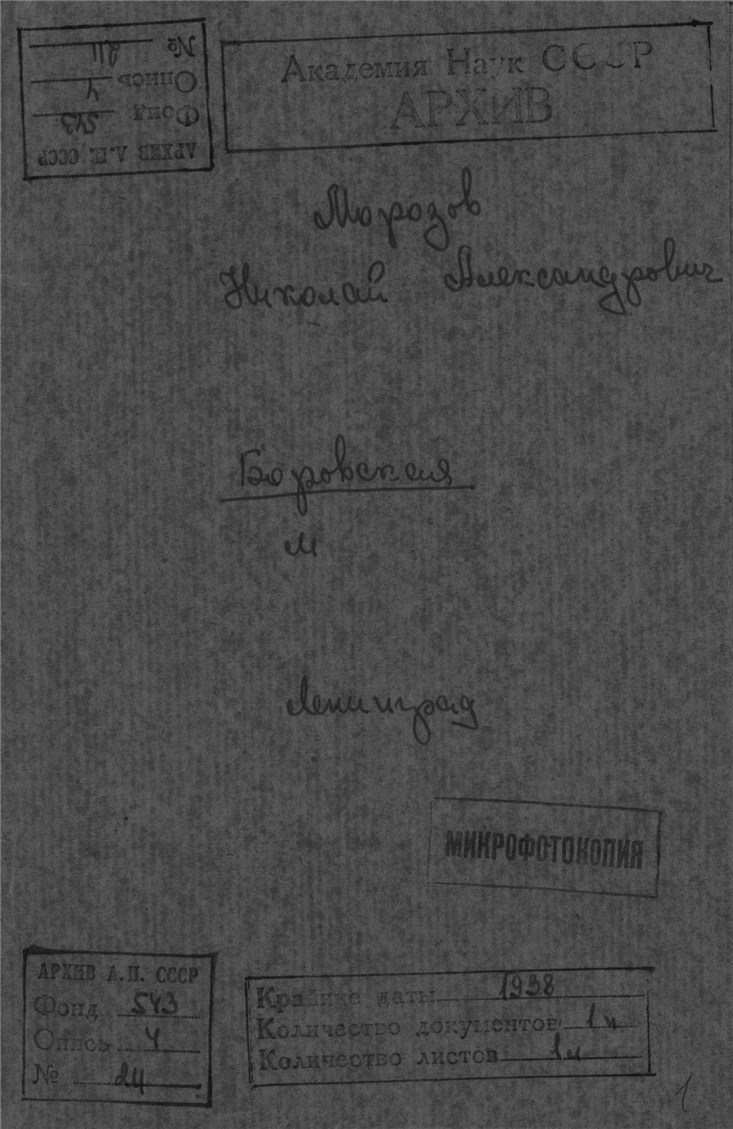 АРХИВ А.Н. СССР
Фонд 543
Опись 4
№ 211
Академия Наук СССР
АРХИВ
Морозов
Николай Александрович
Боровская
М
Ленинград
МИКРОФОТОКОПИЯ
АРХИВ А.Н. СССР
Фонд 543
Опись 4
№
Крайние даты 1938
Количество документов 1
Количество листов 1
1